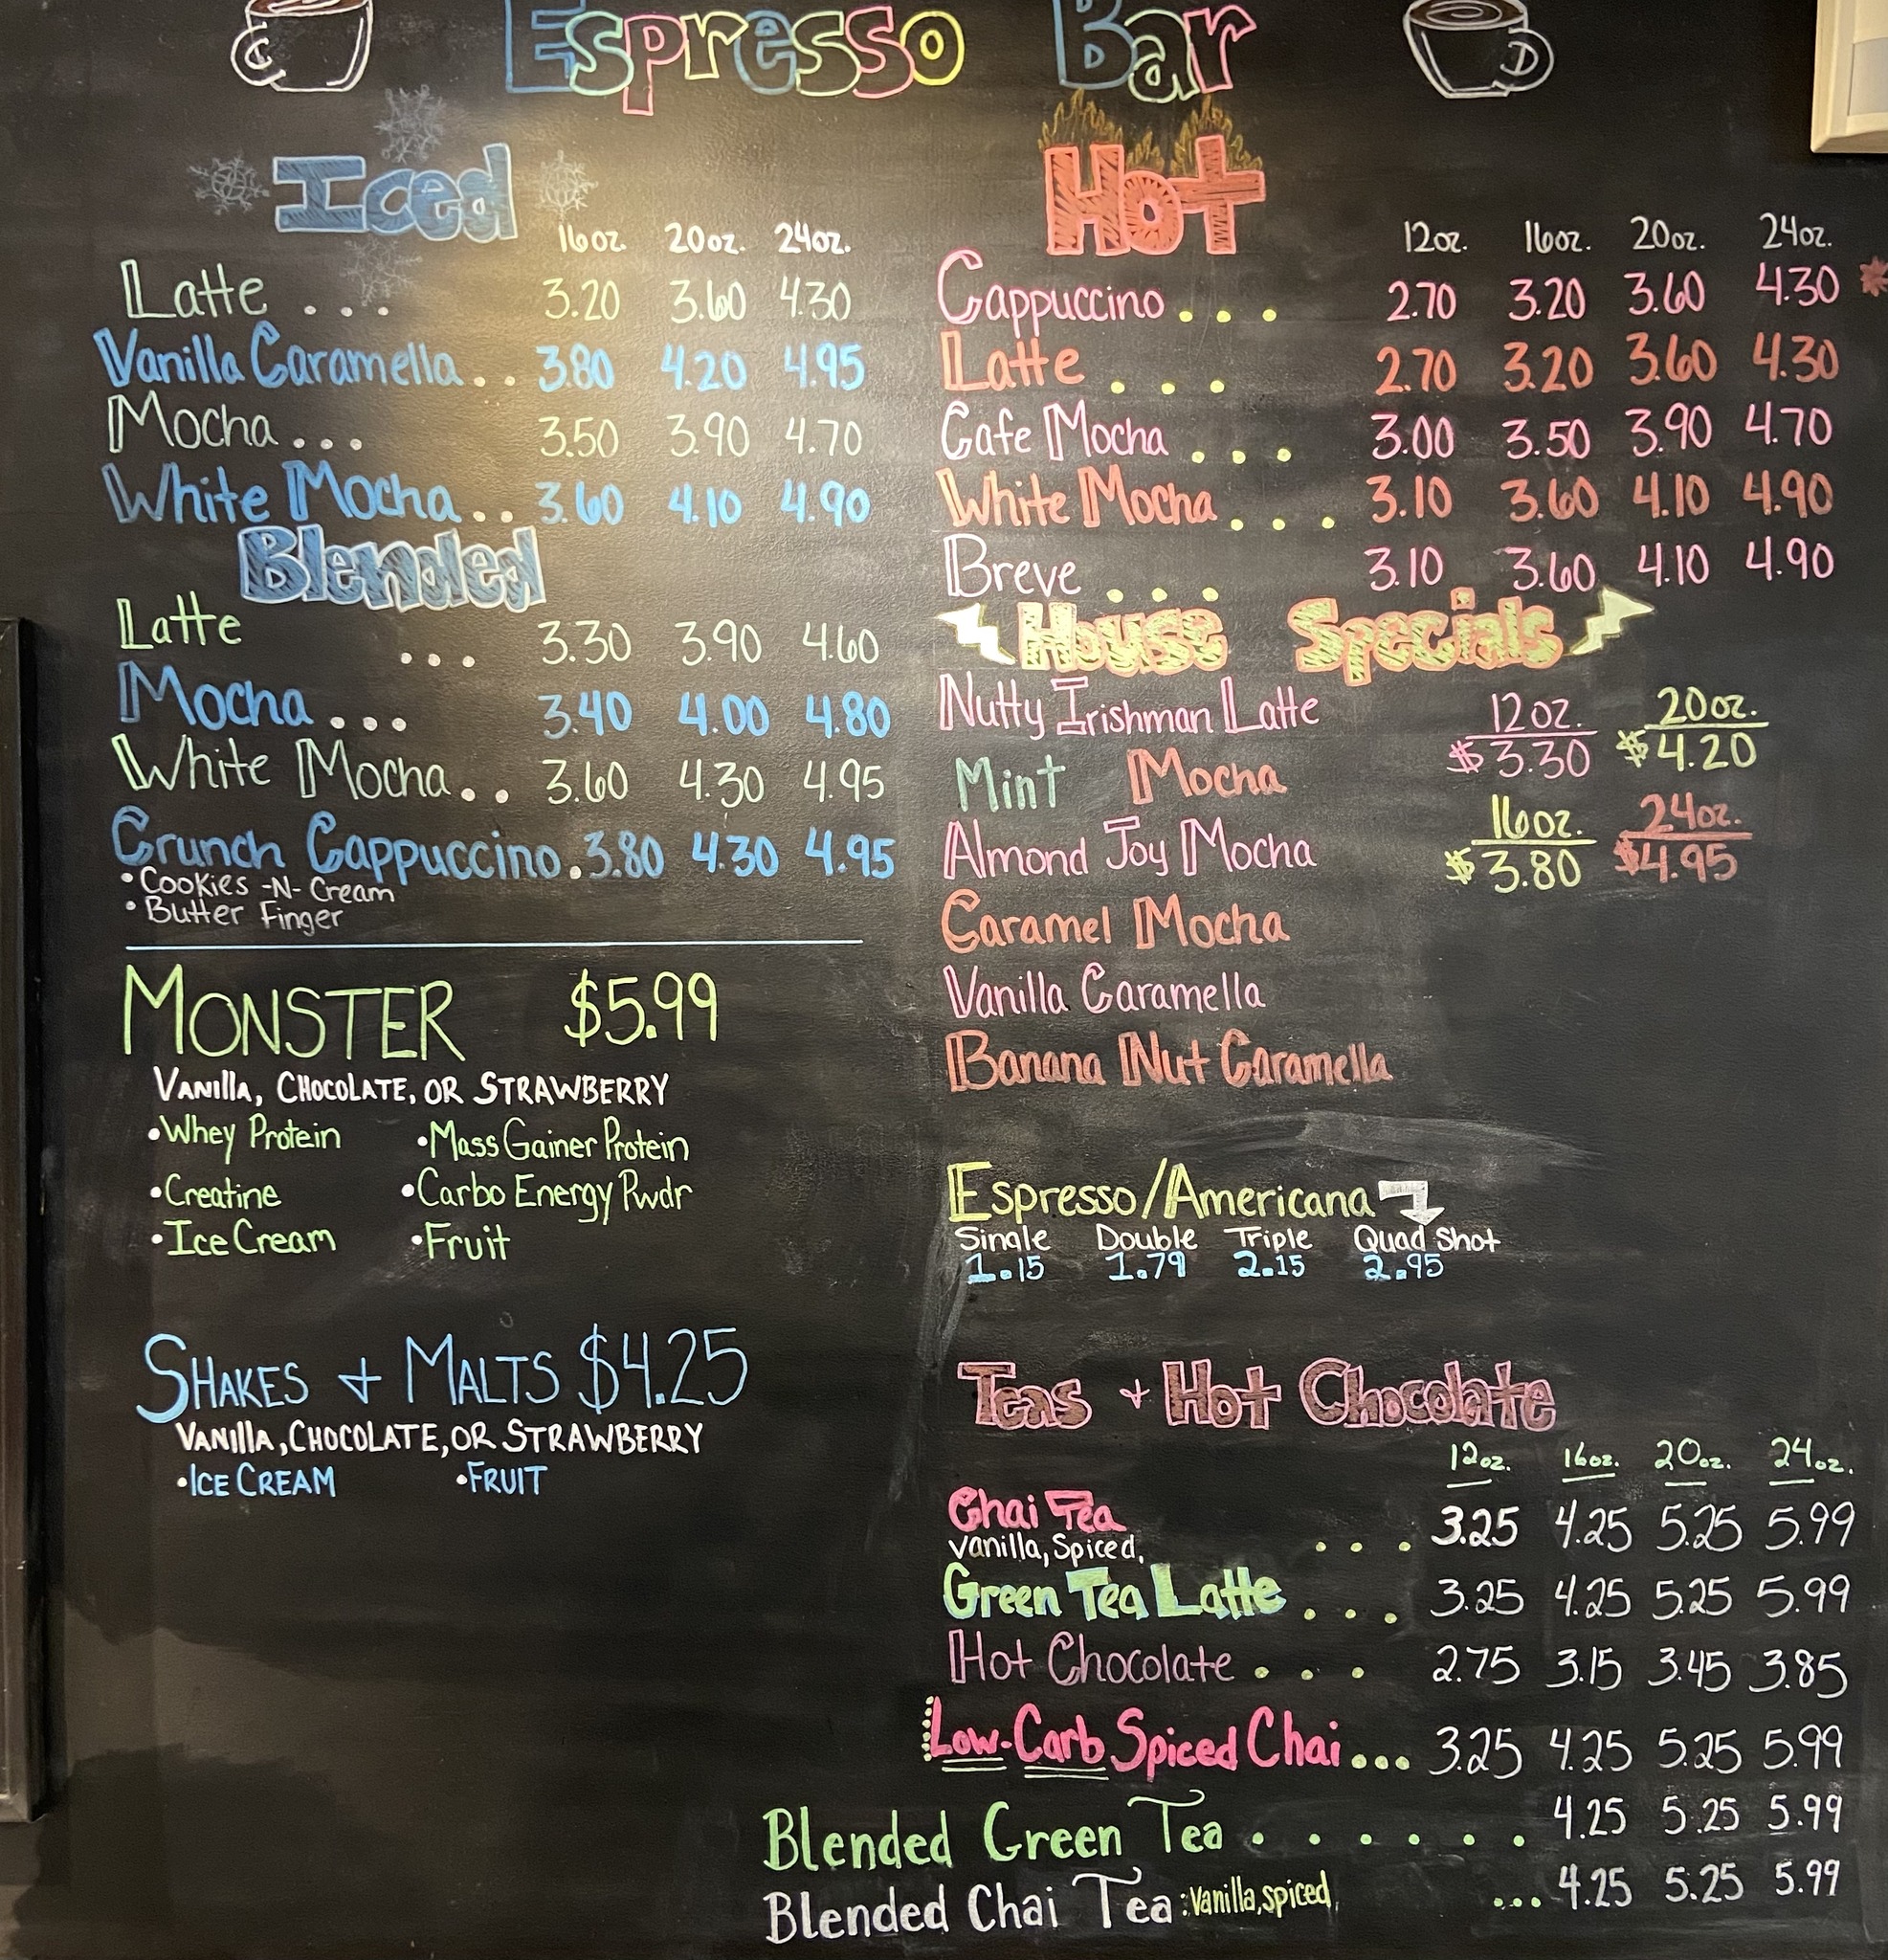 Espresso Bar
Iced
16oz. 20oz. 24oz.
Latte . . . 3.20 3.60 4.30
Vanilla Caramella . . 3.80 4.20 4.95
Mocha . . . 3.50 3.90 4.70
White Mocha . . 3.60 4.10 4.90
Blended
Latte . . . 3.30 3.90 4.60
Mocha . . . 3.40 4.00 4.80
White Mocha . . 3.60 4.30 4.95
Crunch Cappuccino . 3.80 4.30 4.95
• Cookies -N- Cream
• Butter Finger
MONSTER $5.99
VANILLA, CHOCOLATE, OR STRAWBERRY
• Whey Protein • Mass Gainer Protein
• Creatine • Carbo Energy Pwdr
• Ice Cream • Fruit
SHAKES + MALTS $4.25
VANILLA, CHOCOLATE, OR STRAWBERRY
• ICE CREAM • FRUIT
Hot
12oz. 16oz. 20oz. 24oz.
Cappuccino . . . 2.70 3.20 3.60 4.30
Latte . . . 2.70 3.20 3.60 4.30
Cafe Mocha . . . 3.00 3.50 3.90 4.70
White Mocha . . . 3.10 3.60 4.10 4.90
Breve . . . 3.10 3.60 4.10 4.90
House Specials
Nutty Irishman Latte
Mint Mocha
Almond Joy Mocha
Caramel Mocha
Vanilla Caramella
Banana Nut Caramella
12oz. 20oz.
$3.30 $4.20
16oz. 24oz.
$3.80 $4.95
Espresso/Americana
Single Double Triple Quad Shot
1.15 1.79 2.15 2.95
Teas + Hot Chocolate
12oz. 16oz. 20oz. 24oz.
Chai Tea . . . 3.25 4.25 5.25 5.99
Vanilla, Spiced,
Green Tea Latte . . . 3.25 4.25 5.25 5.99
Hot Chocolate . . . 2.75 3.15 3.45 3.85
Low-Carb Spiced Chai... 3.25 4.25 5.25 5.99
Blended Green Tea . . . . . . 4.25 5.25 5.99
Blended Chai Tea : Vanilla, spiced, ... 4.25 5.25 5.99